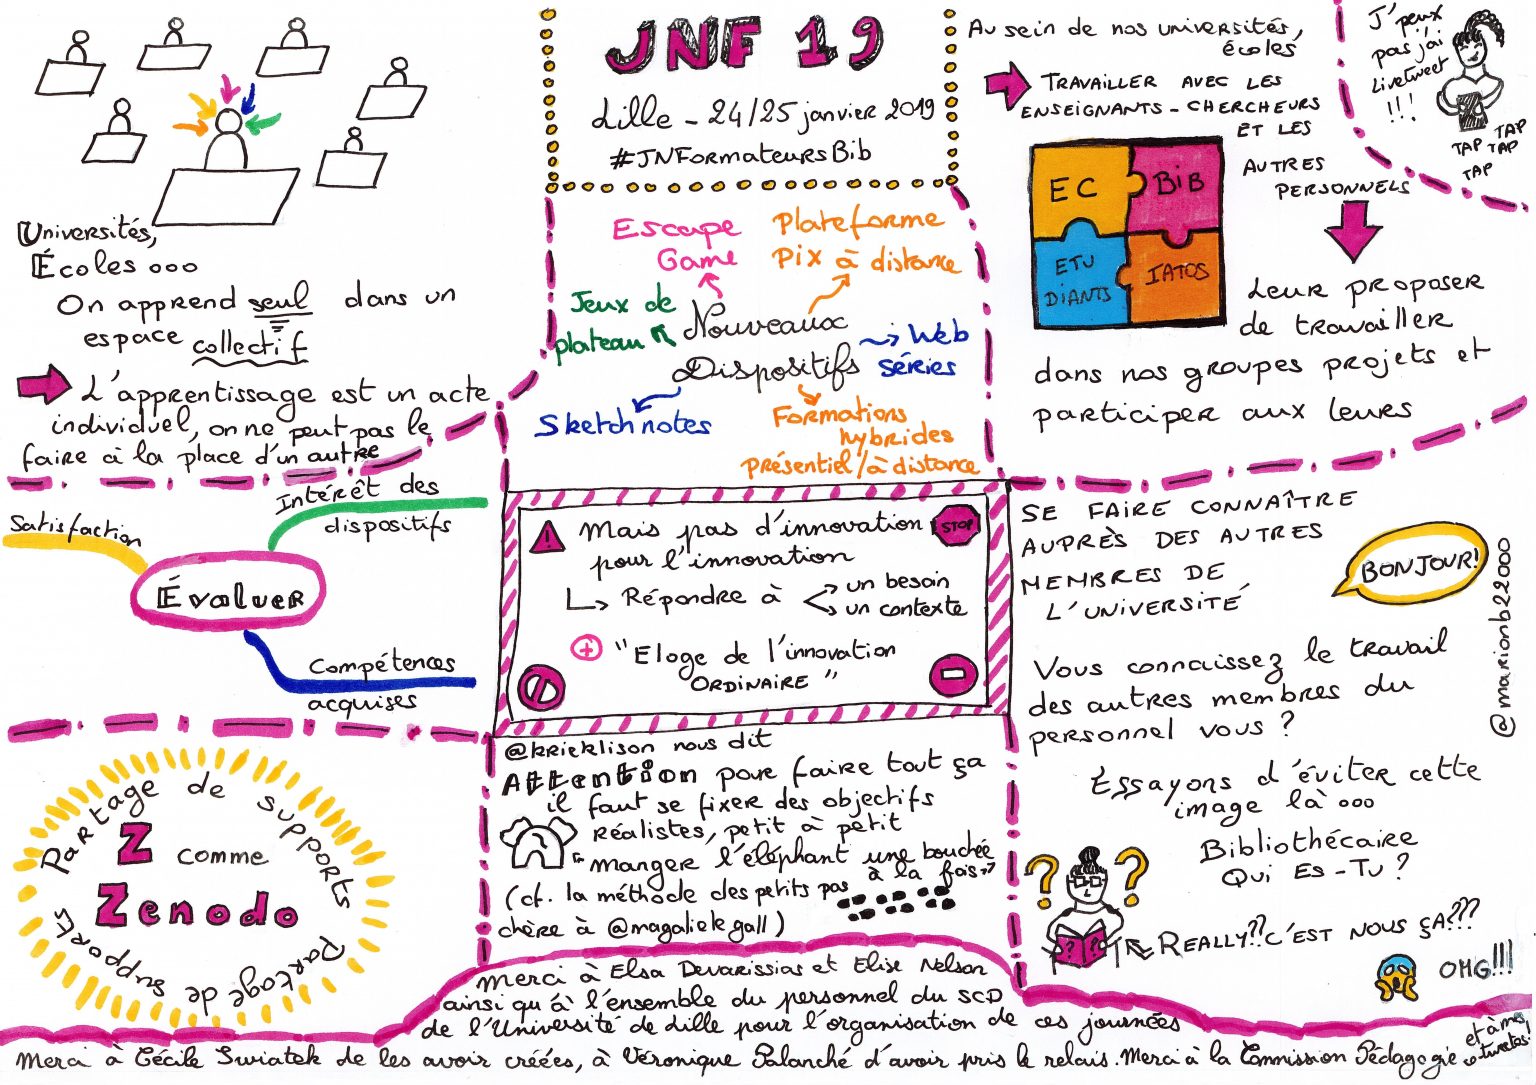 JNF 19
Lille - 24/25 janvier 2019
#JNFormateursBib
Universités,
Écoles ...
On apprend seul dans un
espace collectif
L'apprentissage est un acte
individuel, on ne peut pas le
faire à la place d'un autre
Nouveaux
Dispositifs
Escape
Game
Plateforme
Pix à distance
Jeux de
plateau
Web
séries
Sketchnotes
Formations
hybrides
présentiel/à distance
Au sein de nos universités,
écoles
Travailler avec les
enseignants-chercheurs
et les
autres
personnels
EC
BIB
ETU
DIANTS
IATOS
Leur proposer
de travailler
dans nos groupes projets et
participer aux leurs
J'peux
pas j'ai
livetweet
!!!
TAP
TAP TAP
TAP
Évaluer
Satisfaction
Intérêt des
dispositifs
Compétences
acquises
Mais pas d'innovation
pour l'innovation
STOP
Répondre à
un besoin
un contexte
+ "Eloge de l'innovation
ordinaire"
SE FAIRE CONNAÎTRE
AUPRÈS DES AUTRES
MEMBRES DE
L'UNIVERSITÉ
BONJOUR!
@marionb22000
Vous connaissez le travail
des autres membres du
personnel vous ?
Essayons d'éviter cette
image là ...
Bibliothécaire
Qui Es-Tu ?
? ?
? ?
Really?? C'est nous ça???
OMG!!!
Partage de supports
Z comme
Zenodo
Partage de supports
@krieklison nous dit
Attention pour faire tout ça
il faut se fixer des objectifs
réalistes, petit à petit
manger l'éléphant une bouchée
à la fois
(cf. la méthode des petits pas
chère à @magaliekgall)
Merci à Elsa Devarissias et Elise Nelson
ainsi qu'à l'ensemble du personnel du SCD
de l'Université de Lille pour l'organisation de ces journées
Merci à Cécile Swiatek de les avoir créées, à Véronique Palanché d'avoir pris le relais. Merci à la Commission Pédagogie
et à mes